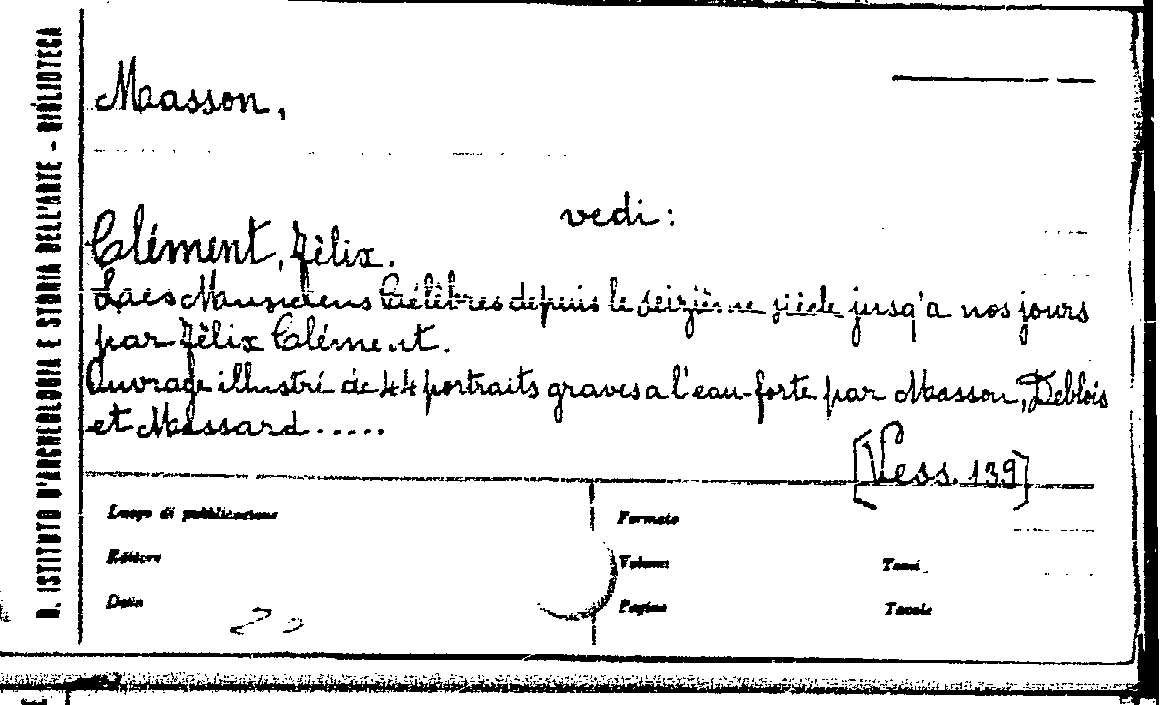 R. ISTITUTO D'ARCHEOLOGIA E STORIA DELL'ARTE - BIBLIOTECA
Masson,
vedi:
Clément, Félix.
Les Musiciens Célèbres depuis le seizième siècle jusq'a nos jours
par Félix Clément.
Ouvrage illustré de 44 portraits graves a l'eau-forte par Masson, Deblois
et Massard.....
[Vess. 139]
Luogo di pubblicazione
Formato
Editore
Volumi
Tomi
Data
Pagine
Tavole